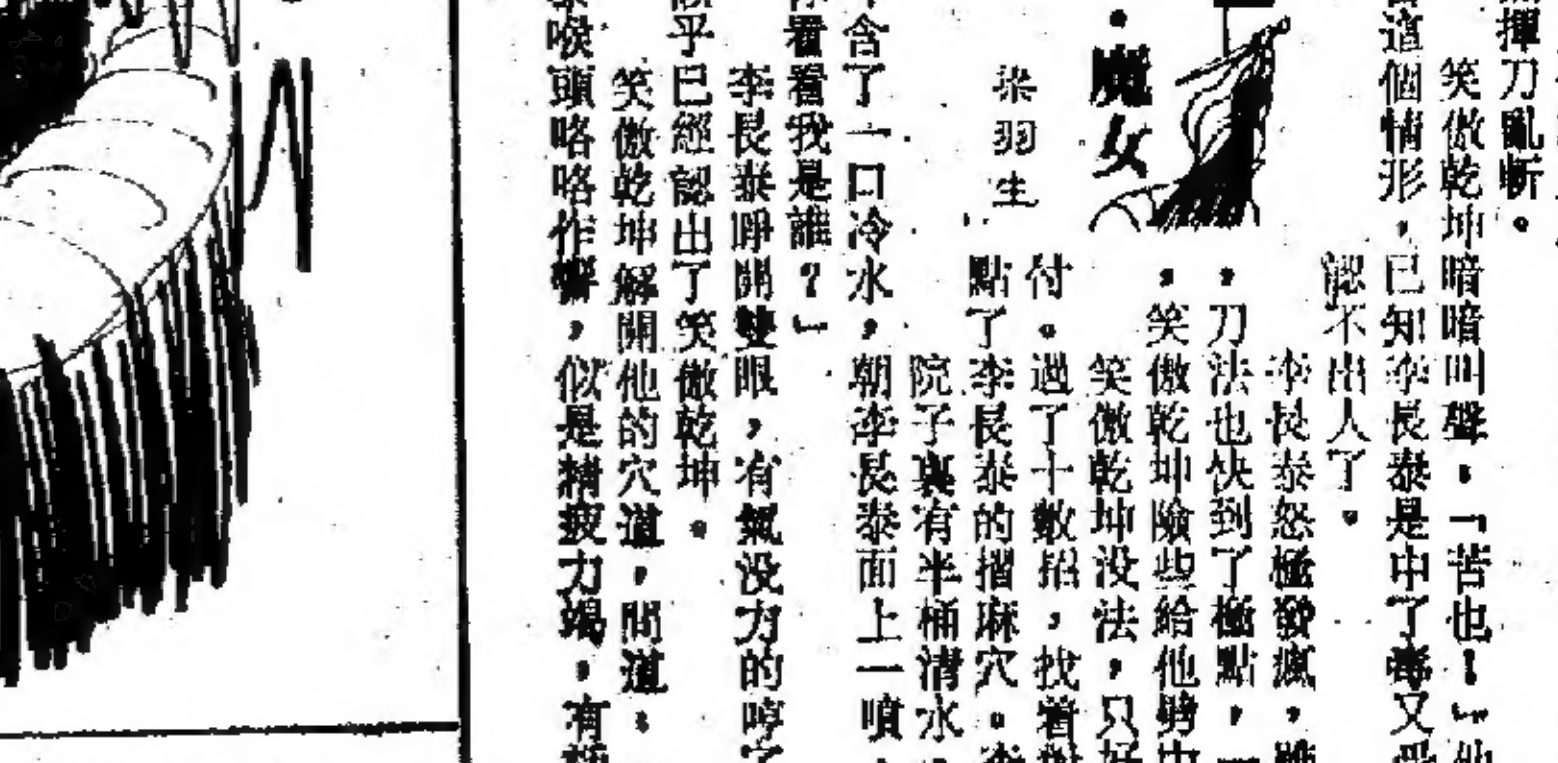 揮刀亂斬。
笑傲乾坤暗暗叫聲：「苦也！」他
這個情形，已知李長泰是中了毒又受
認不出人了。
李長泰怒極發瘋，雖
，刀法也快到了極點，
，笑傲乾坤險些給他劈中
笑傲乾坤没法，只好
付。過了十數招，找着
點了李長泰的摺麻穴。李
院子裏有半桶清水
・魔女
梁羽生
含了一口冷水，朝李長泰面上一噴，
看看我是誰？」
李長泰睜開雙眼，有氣没力的哼了
乎已經認出了笑傲乾坤。
笑傲乾坤解開他的穴道，問道：
喉頭咯咯作響，似是精疲力竭，有